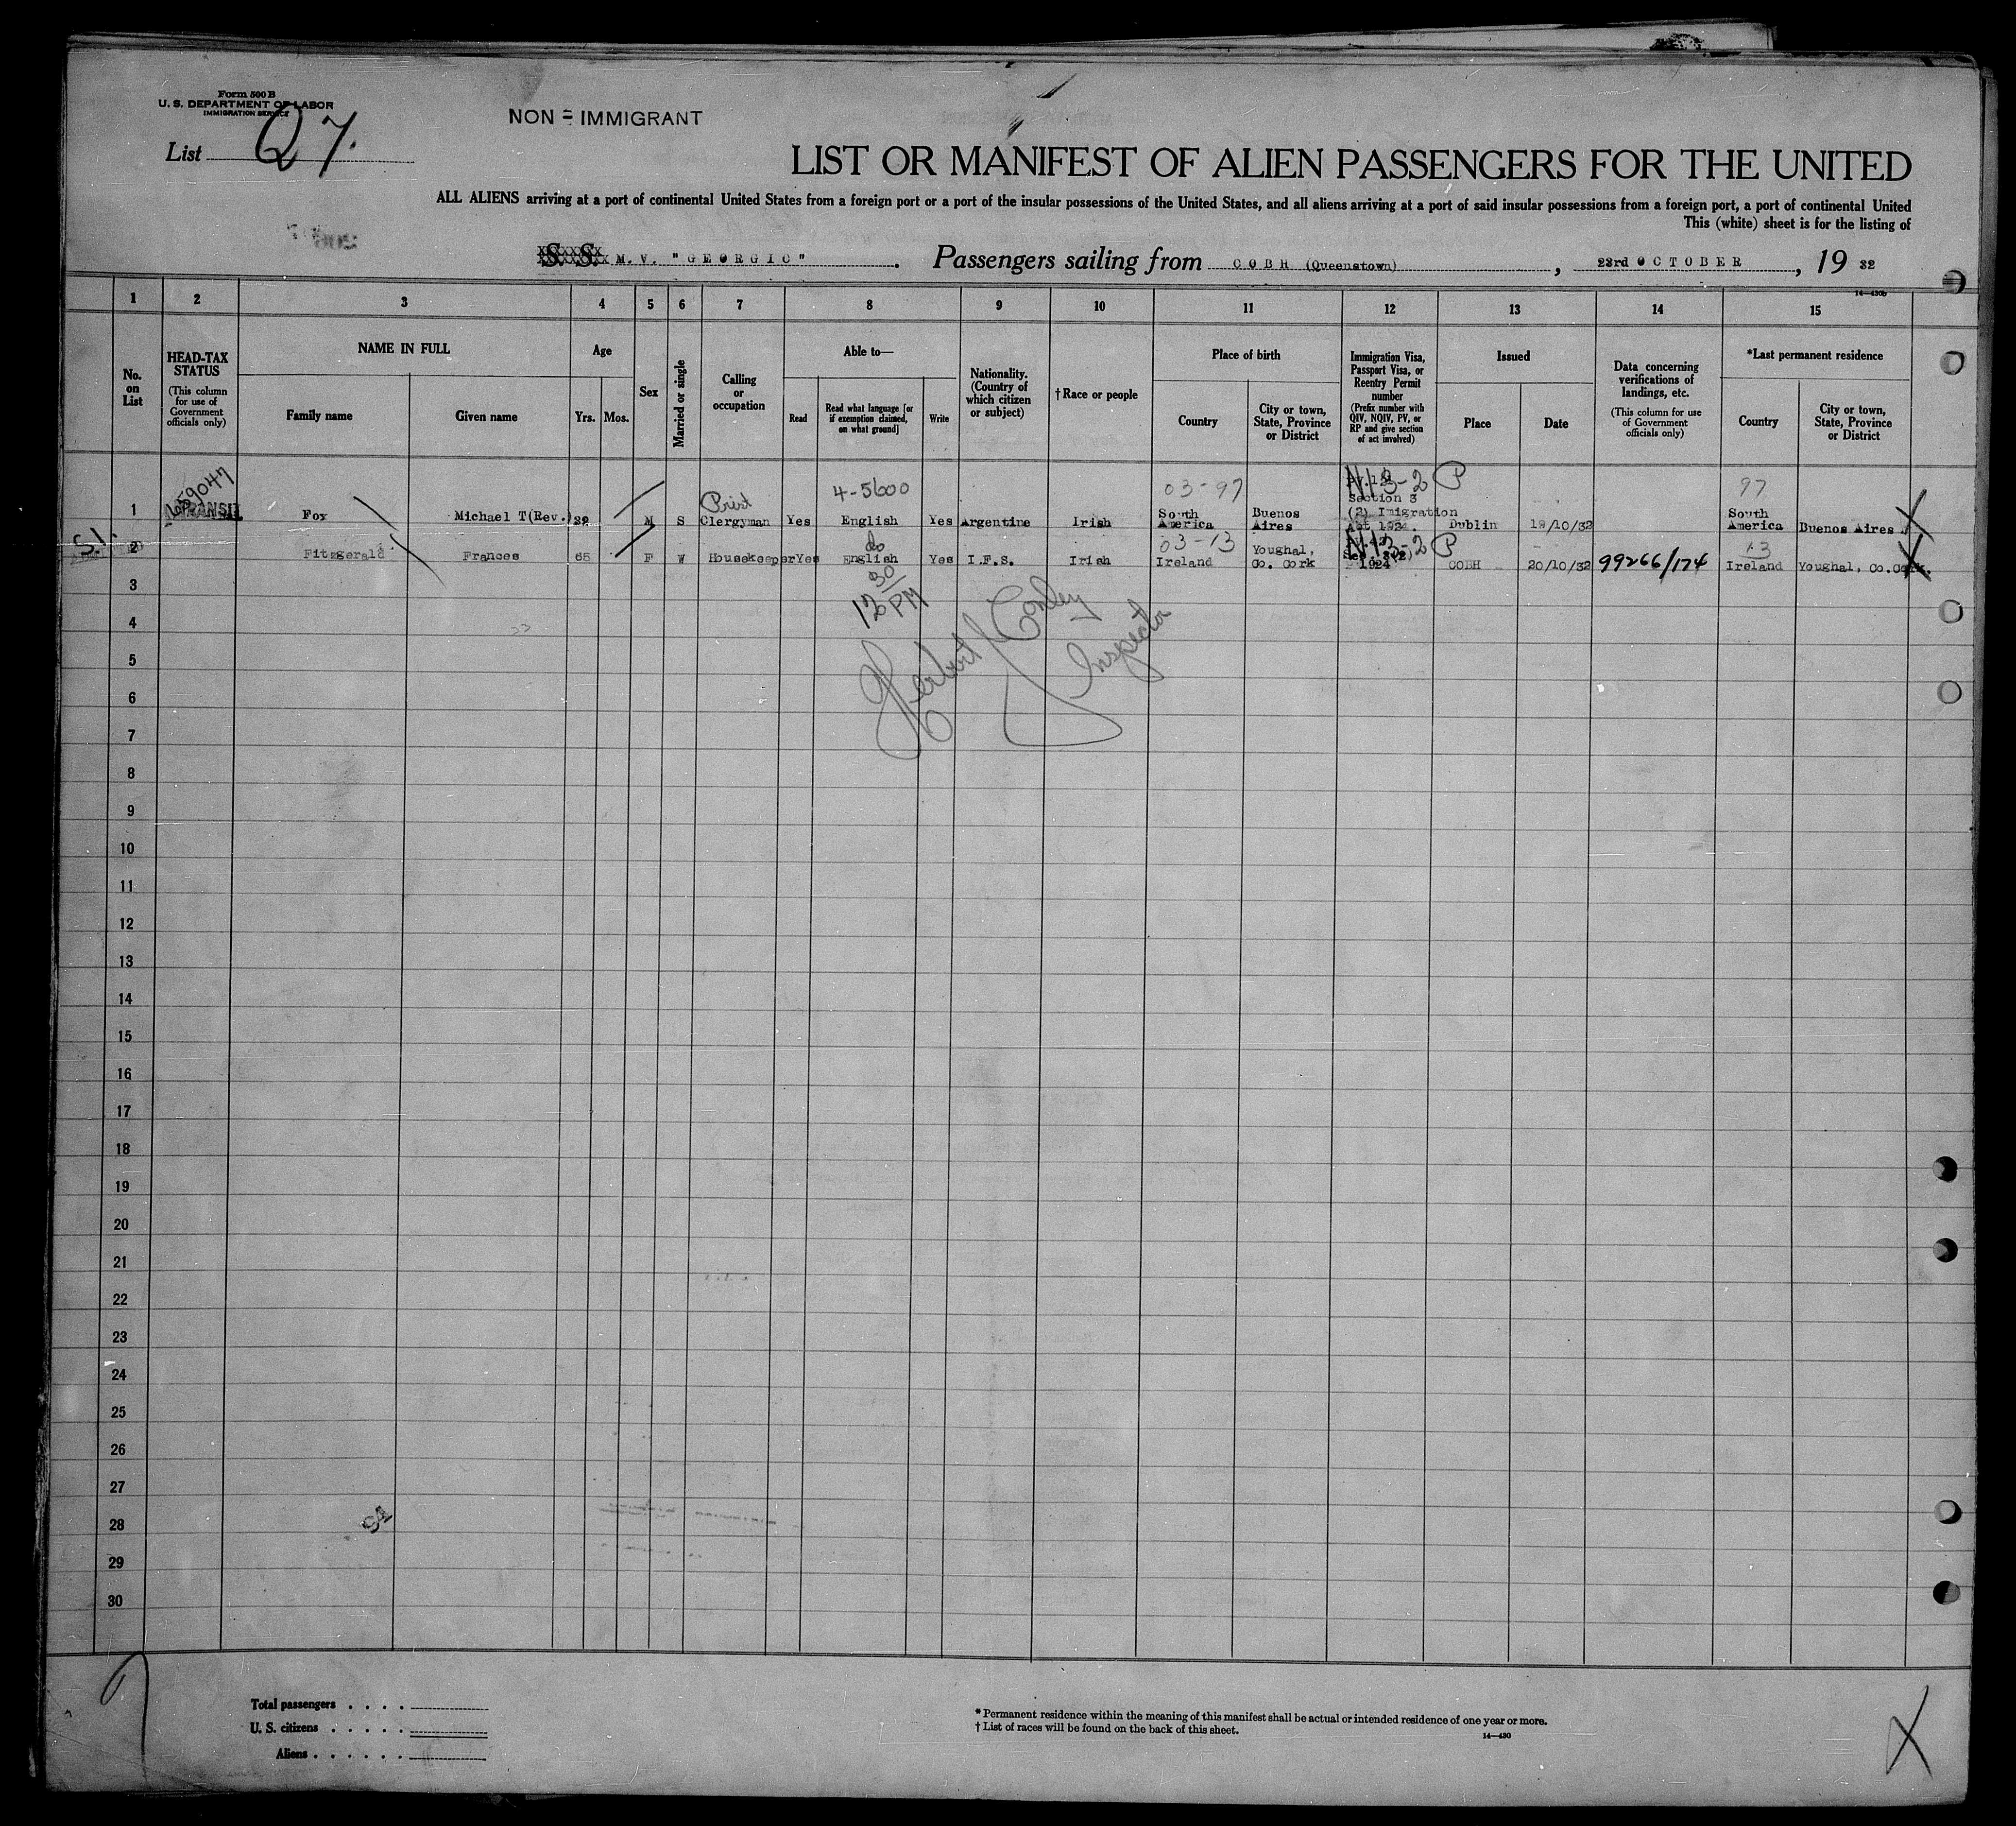 Form 500 B
U. S. DEPARTMENT OF LABOR
IMMIGRATION SERVICE
List 27.
NON - IMMIGRANT
LIST OR MANIFEST OF ALIEN PASSENGERS FOR THE UNITED
ALL ALIENS arriving at a port of continental United States from a foreign port or a port of the insular possessions of the United States, and all aliens arriving at a port of said insular possessions from a foreign port, a port of continental United
This (white) sheet is for the listing of
S. S. M. V. "GEORGIC". Passengers sailing from COBH (Queenstown), 23rd OCTOBER, 19 32
14—430b
1 2 3 4 5 6 7 8 9 10 11 12 13 14 15
No. on List
HEAD-TAX STATUS (This column for use of Government officials only)
NAME IN FULL
Family name
Given name
Age
Yrs. Mos.
Sex
Married or single
Calling or occupation
Able to—
Read
Read what language [or if exemption claimed, on what ground]
Write
Nationality. (Country of which citizen or subject)
†Race or people
Place of birth
Country
City or town, State, Province or District
Immigration Visa, Passport Visa, or Reentry Permit number (Prefix number with QIV, NQIV, PV, or RP and give section of act involved)
Issued
Place
Date
Data concerning verifications of landings, etc. (This column for use of Government officials only)
*Last permanent residence
Country
City or town, State, Province or District
4-5600 03-97 3-2 P 97
1 TRANSIT Fox Michael T(Rev.) M S Clergyman Yes English Yes Argentine Irish South America Buenos Aires Section 3 (2) Imigration Act 1924. Dublin 19/10/32 South America Buenos Aires
S.I. do 03-13 3-2 P 13
2 Fitzgerald Frances 65 F W Housekeeper Yes English Yes I.F.S. Irish Ireland Youghal, Co. Cork 1924 COBH 20/10/32 99266/174 Ireland Youghal, Co. Cork.
12 30 PM
Herbert J Conley
Inspector
3
4
5
6
7
8
9
10
11
12
13
14
15
16
17
18
19
20
21
22
23
24
25
26
27
28
29
30
Total passengers . . . .
U. S. citizens . . . . .
Aliens . . . . . .
* Permanent residence within the meaning of this manifest shall be actual or intended residence of one year or more.
† List of races will be found on the back of this sheet.
14—430